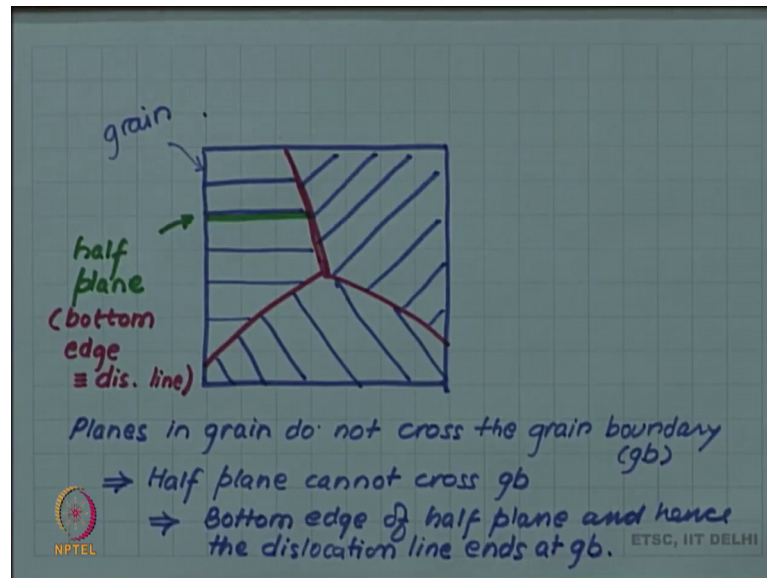 grain
half
plane
(bottom
edge
≡ dis. line)
Planes in grain do not cross the grain boundary
(gb)
⇒ Half plane cannot cross gb
⇒ Bottom edge of half plane and hence
the dislocation line ends at gb.
NPTEL
ETSC, IIT DELHI